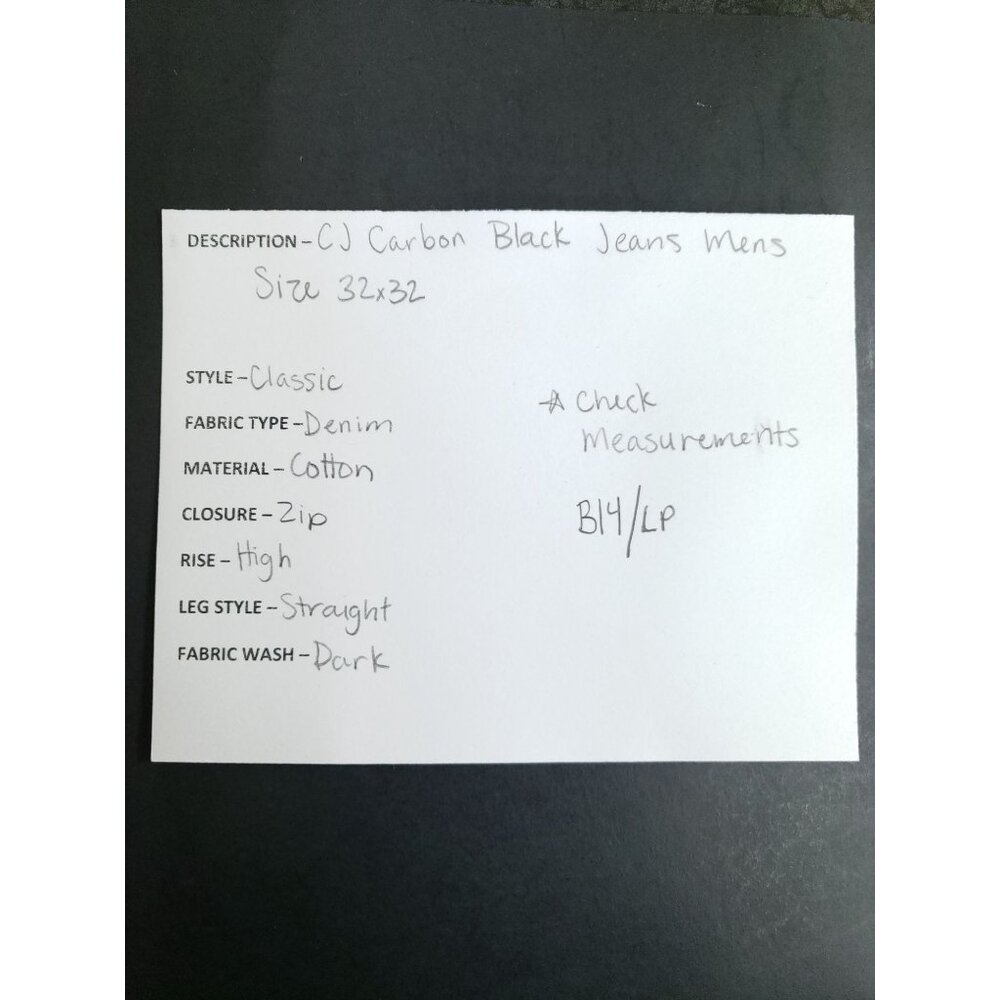 DESCRIPTION – CJ Carbon Black Jeans Mens
Size 32x32
STYLE – Classic
FABRIC TYPE – Denim
MATERIAL – Cotton
CLOSURE – Zip
RISE – High
LEG STYLE – Straight
FABRIC WASH – Dark
☆ Check
Measurements
B14/LP